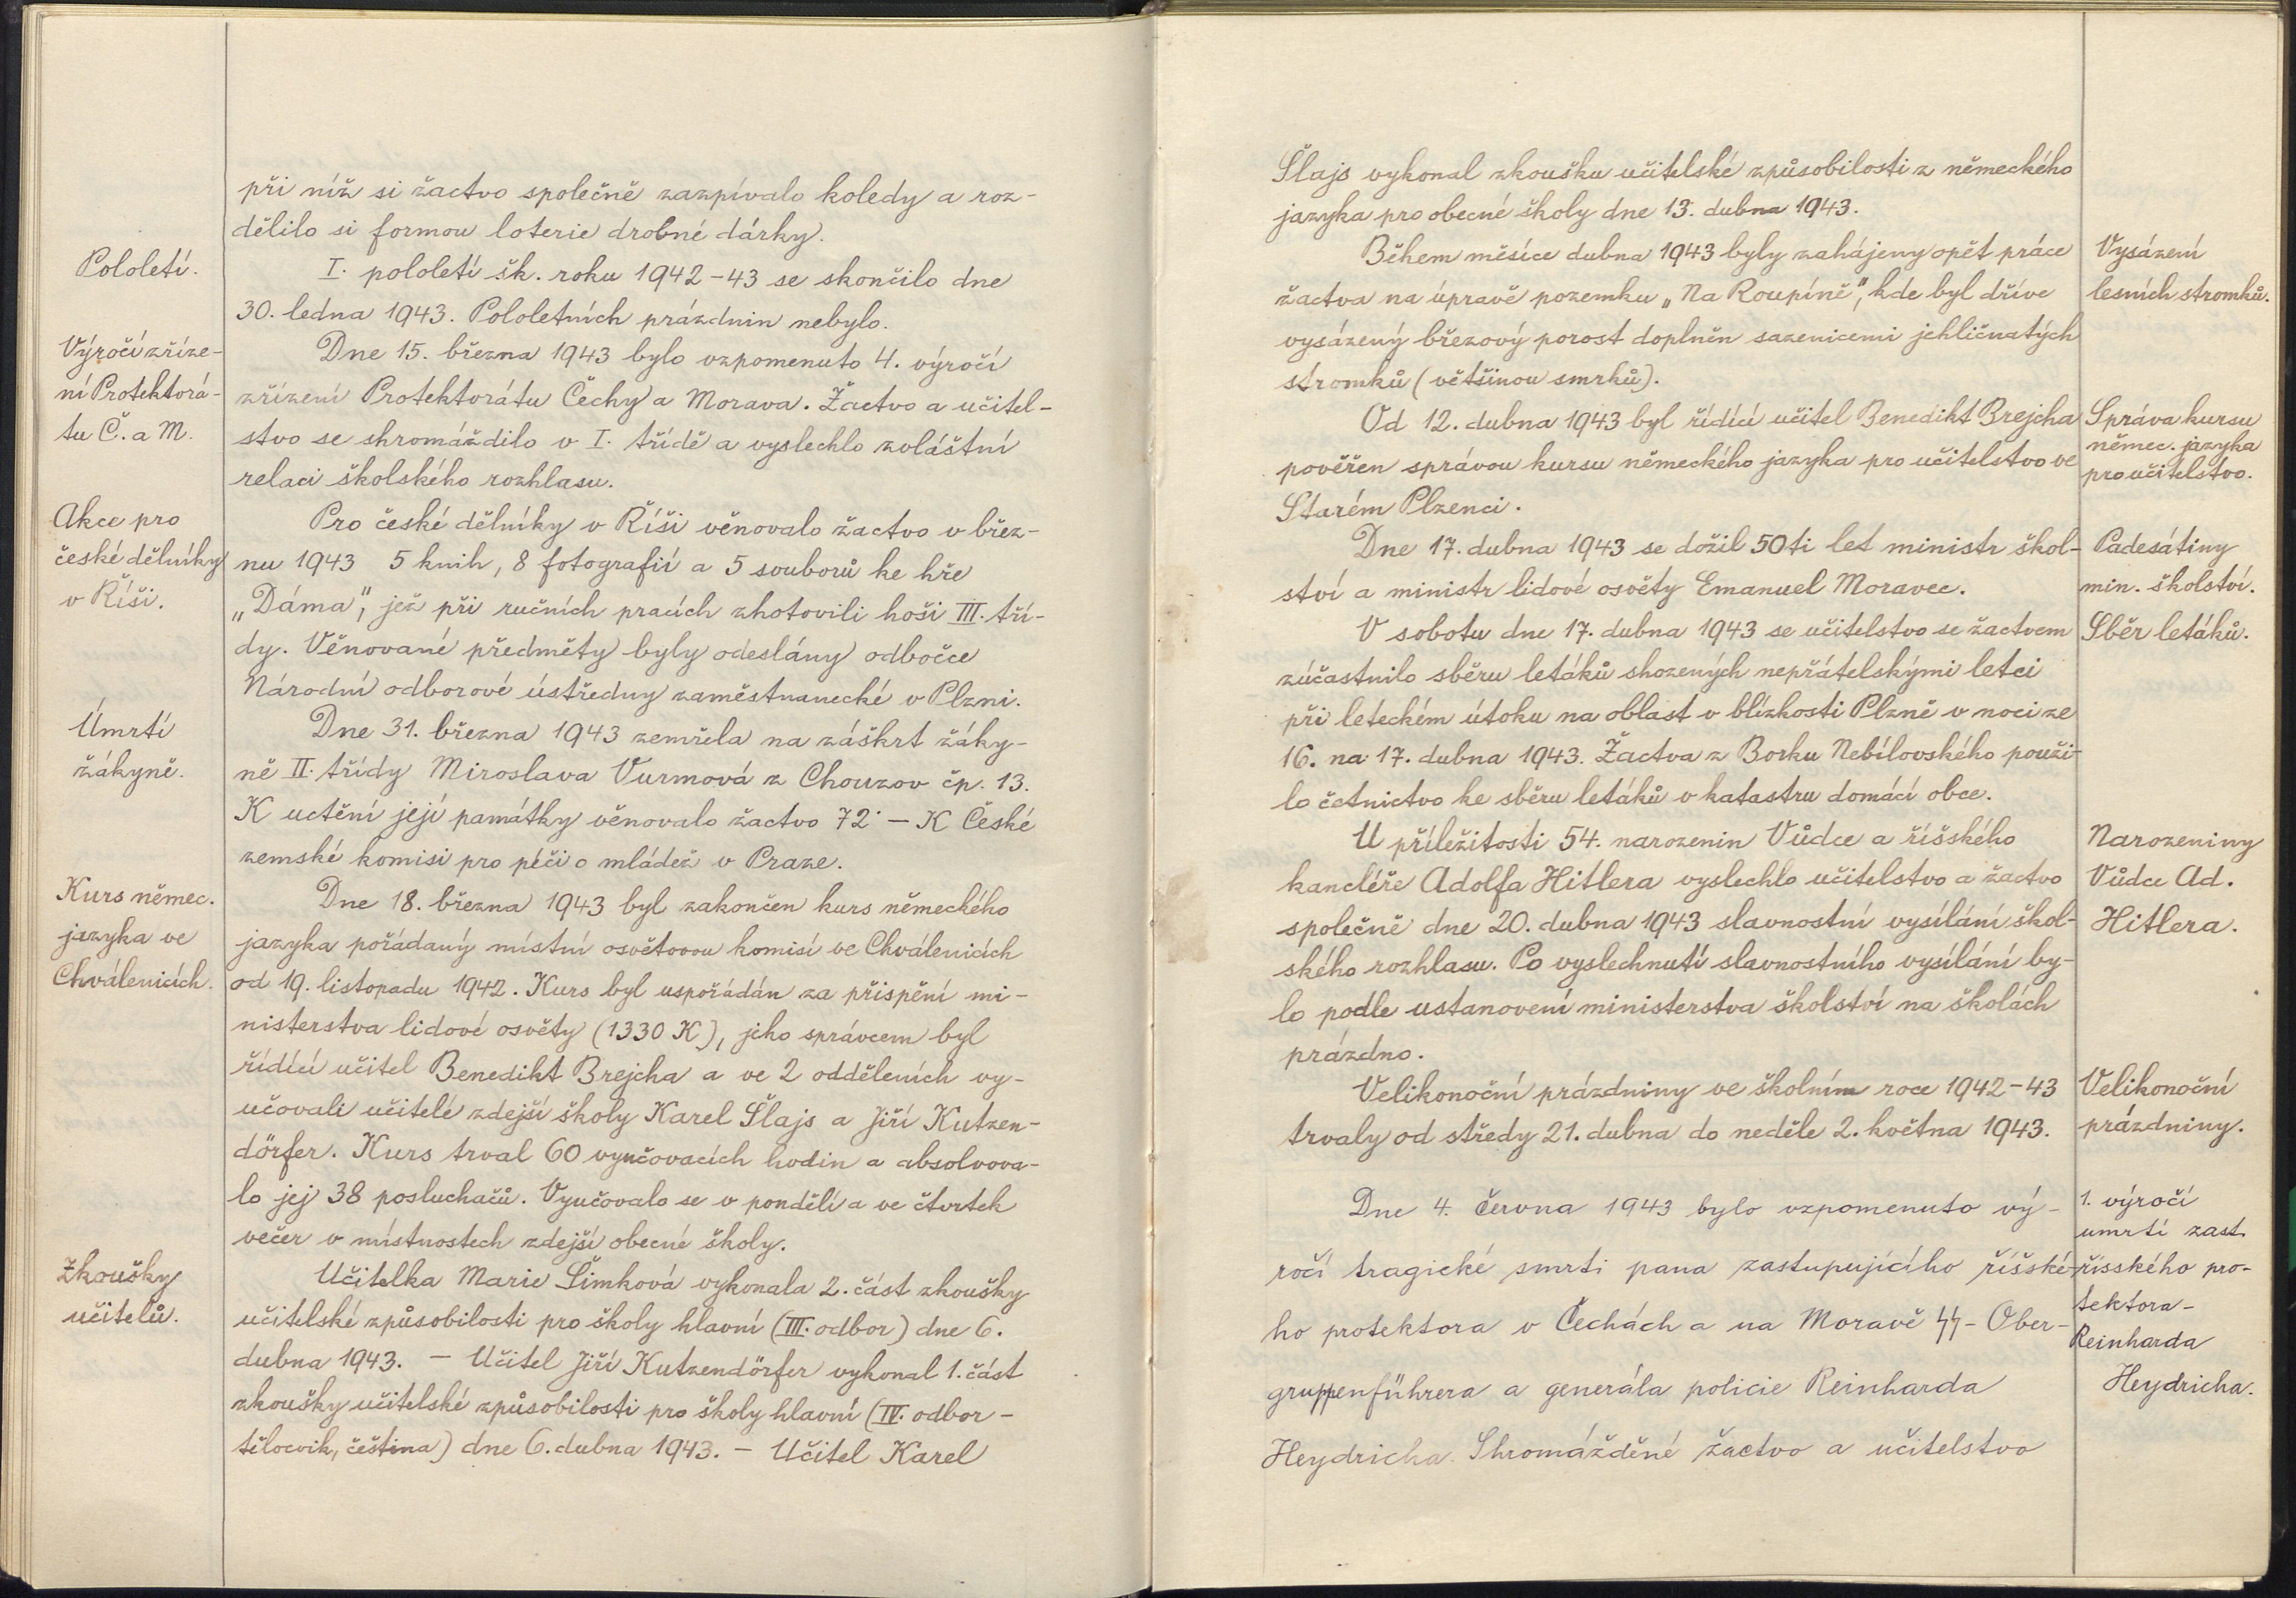 při níž si žactvo společně zazpívalo koledy a roz-
dělilo si formou loterie drobné dárky.
Pololetí.
I. pololetí šk. roku 1942-43 se skončilo dne
30. ledna 1943. Pololetních prázdnin nebylo.
Výročí zříze-
ní Protektorá-
tu Č. a M.
Dne 15. března 1943 bylo vzpomenuto 4. výročí
zřízení Protektorátu Čechy a Morava. Žactvo a učitel-
stvo se shromáždilo v I. třídě a vyslechlo zvláštní
relaci školského rozhlasu.
Akce pro
české dělníky
v Říši.
Pro české dělníky v Říši věnovalo žactvo v břez-
nu 1943 5 knih, 8 fotografií a 5 souborů ke hře
„Dáma“, jež při ručních pracích zhotovili hoši III. tří-
dy. Věnované předměty byly odeslány odbočce
Národní odborové ústředny zaměstnanecké v Plzni.
Úmrtí
žákyně.
Dne 31. března 1943 zemřela na záškrt žáky-
ně II. třídy Miroslava Vurmová z Chouzov čp. 13.
K uctění její památky věnovalo žactvo 72·— K České
zemské komisi pro péči o mládež v Praze.
Kurs němec.
jazyka ve
Chválenicích.
Dne 18. března 1943 byl zakončen kurs německého
jazyka pořádaný místní osvětovou komisí ve Chválenicích
od 19. listopadu 1942. Kurs byl uspořádán za přispění mi-
nisterstva lidové osvěty (1330 K), jeho správcem byl
řídící učitel Benedikt Brejcha a ve 2 odděleních vy-
učovali učitelé zdejší školy Karel Šlajs a Jiří Kutzen-
dörfer. Kurs trval 60 vyučovacích hodin a absolvova-
lo jej 38 posluchačů. Vyučovalo se v pondělí a ve čtvrtek
večer v místnostech zdejší obecné školy.
Zkoušky
učitelů.
Učitelka Marie Šimková vykonala 2. část zkoušky
učitelské způsobilosti pro školy hlavní (III. odbor) dne 6.
dubna 1943. — Učitel Jiří Kutzendörfer vykonal 1. část
zkoušky učitelské způsobilosti pro školy hlavní (IV. odbor -
tělocvik, čeština) dne 6. dubna 1943. — Učitel Karel
Šlajs vykonal zkoušku učitelské způsobilosti z německého
jazyka pro obecné školy dne 13. dubna 1943.
Během měsíce dubna 1943 byly zahájeny opět práce
žactva na úpravě pozemku „Na Roupíně“, kde byl dříve
vysázený březový porost doplněn sazenicemi jehličnatých
stromků (většinou smrků).
Vysázení
lesních stromků.
Od 12. dubna 1943 byl řídící učitel Benedikt Brejcha
pověřen správou kursu německého jazyka pro učitelstvo ve
Starém Plzenci.
Správa kursu
němec. jazyka
pro učitelstvo.
Dne 17. dubna 1943 se dožil 50ti let ministr škol-
ství a ministr lidové osvěty Emanuel Moravec.
Padesátiny
min. školství.
V sobotu dne 17. dubna 1943 se učitelstvo se žactvem
zúčastnilo sběru letáků shozených nepřátelskými letci
při leteckém útoku na oblast v blízkosti Plzně v noci ze
16. na 17. dubna 1943. Žactva z Borku Nebílovského použi-
lo četnictvo ke sběru letáků v katastru domácí obce.
Sběr letáků.
U příležitosti 54. narozenin Vůdce a říšského
kancléře Adolfa Hitlera vyslechlo učitelstvo a žactvo
společně dne 20. dubna 1943 slavnostní vysílání škol-
ského rozhlasu. Po vyslechnutí slavnostního vysílání by-
lo podle ustanovení ministerstva školství na školách
prázdno.
Narozeniny
Vůdce Ad.
Hitlera.
Velikonoční prázdniny ve školním roce 1942-43
trvaly od středy 21. dubna do neděle 2. května 1943.
Velikonoční
prázdniny.
Dne 4. června 1943 bylo vzpomenuto vý-
ročí tragické smrti pana zastupujícího říšské-
ho protektora v Čechách a na Moravě ᛋᛋ - Ober-
gruppenführera a generála policie Reinharda
Heydricha. Shromážděné žactvo a učitelstvo
1. výročí
umrtí zast.
řísského pro-
tektora-
Reinharda
Heydricha.